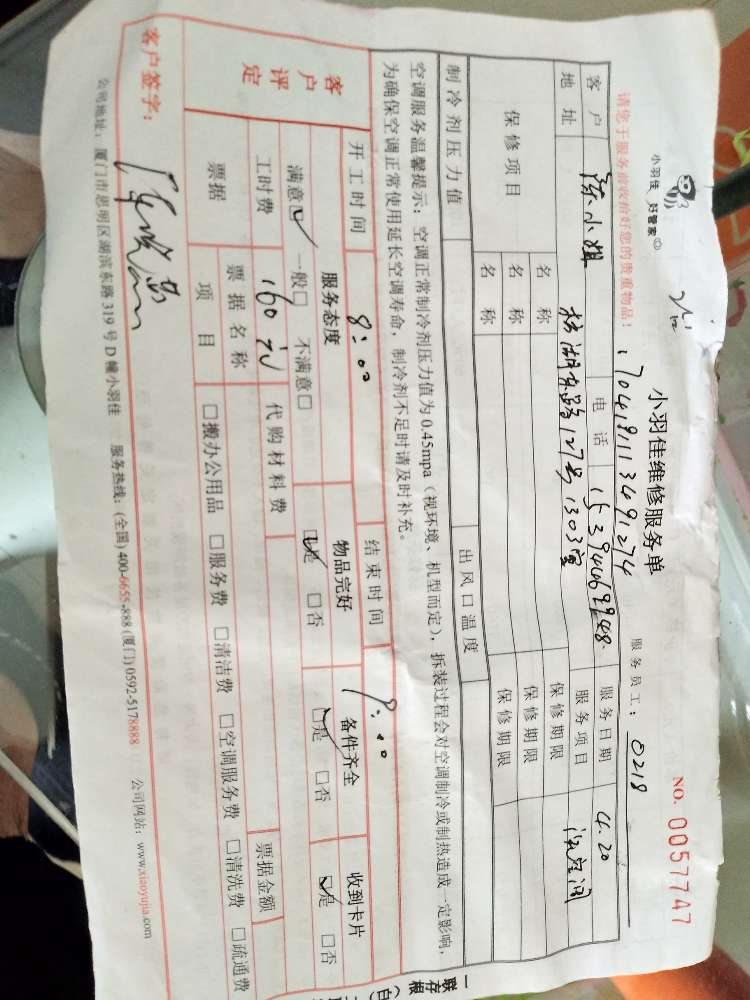 小羽佳 好管家
小羽佳维修服务单
NO. 0057747
170418113491274
服务员工: 0218
请您于服务前收拾好您的贵重物品!
客户 陈小姐 电话 服务日期 4.20
地址 127号1303室 服务项目
保修项目 名称 保修期限
名称 保修期限
名称 保修期限
制冷剂压力值 出风口温度
空调服务温馨提示:空调正常制冷剂压力值为0.45mpa(视环境、机型而定),拆装过程会对空调制冷或制热造成一定影响,
为确保空调正常使用延长空调寿命,制冷剂不足时请及时补充。
开工时间 8:00 结束时间 9:00
客户评定 服务态度 物品完好 备件齐全 收到卡片
满意☑ 一般□ 不满意□ ☑是 □否 ☑是 □否 ☑是 □否
工时费 160元 代购材料费
票据 票据名称 票据金额
项目 □搬办公用品 □服务费 □清洁费 □空调服务费 □清洗费 □疏通费
客户签字:
公司地址:厦门市思明区湖滨东路319号D幢小羽佳 服务热线:(全国)400-6655-888(厦门)0592-5178888 公司网站:www.xiaoyujia.com
一联存根(白)